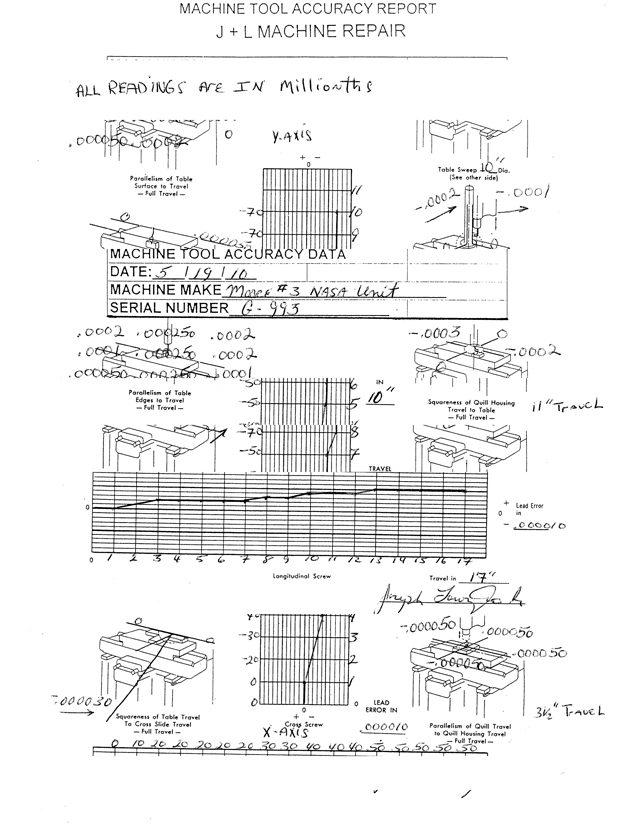 MACHINE TOOL ACCURACY REPORT
J + L MACHINE REPAIR
ALL READINGS ARE IN Millionths
.000050 .0002 0
Y-AXIS
+ -
0
Parallelism of Table
Surface to Travel
— Full Travel —
Table Sweep 10" Dia.
(See other side)
11
-70 10
-70 9
-.0002 -.0001
0
.000035
MACHINE TOOL ACCURACY DATA
DATE: 5/19/10
MACHINE MAKE Moore #3 NASA Unit
SERIAL NUMBER G-993
.0002 .000250 .0002
.0002
.000250
.0001
-.0003 0
-.0002
Parallelism of Table
Edges to Travel
— Full Travel —
-50 6
-50 5
IN
10"
Squareness of Quill Housing
Travel to Table
— Full Travel —
11" TRAVEL
-70 8
-50 7
TRAVEL
0
+ Lead Error
0 in
- .000010
0 1 2 3 4 5 6 7 8 9 10 11 12 13 14 15 16 17
Longitudinal Screw
Travel in 17"
0
-40 4
-30 3
-20 2
0 1
0
-.000050 .000050
.000050
-.000050
-.000030
Squareness of Table Travel
To Cross Slide Travel
— Full Travel —
+ -
Cross Screw
X-AXIS
LEAD
ERROR IN
.000010
Parallelism of Quill Travel
to Quill Housing Travel
— Full Travel —
3½" TRAVEL
0 10 20 20 20 20 20 30 30 40 40 40 50 50 50 50 50